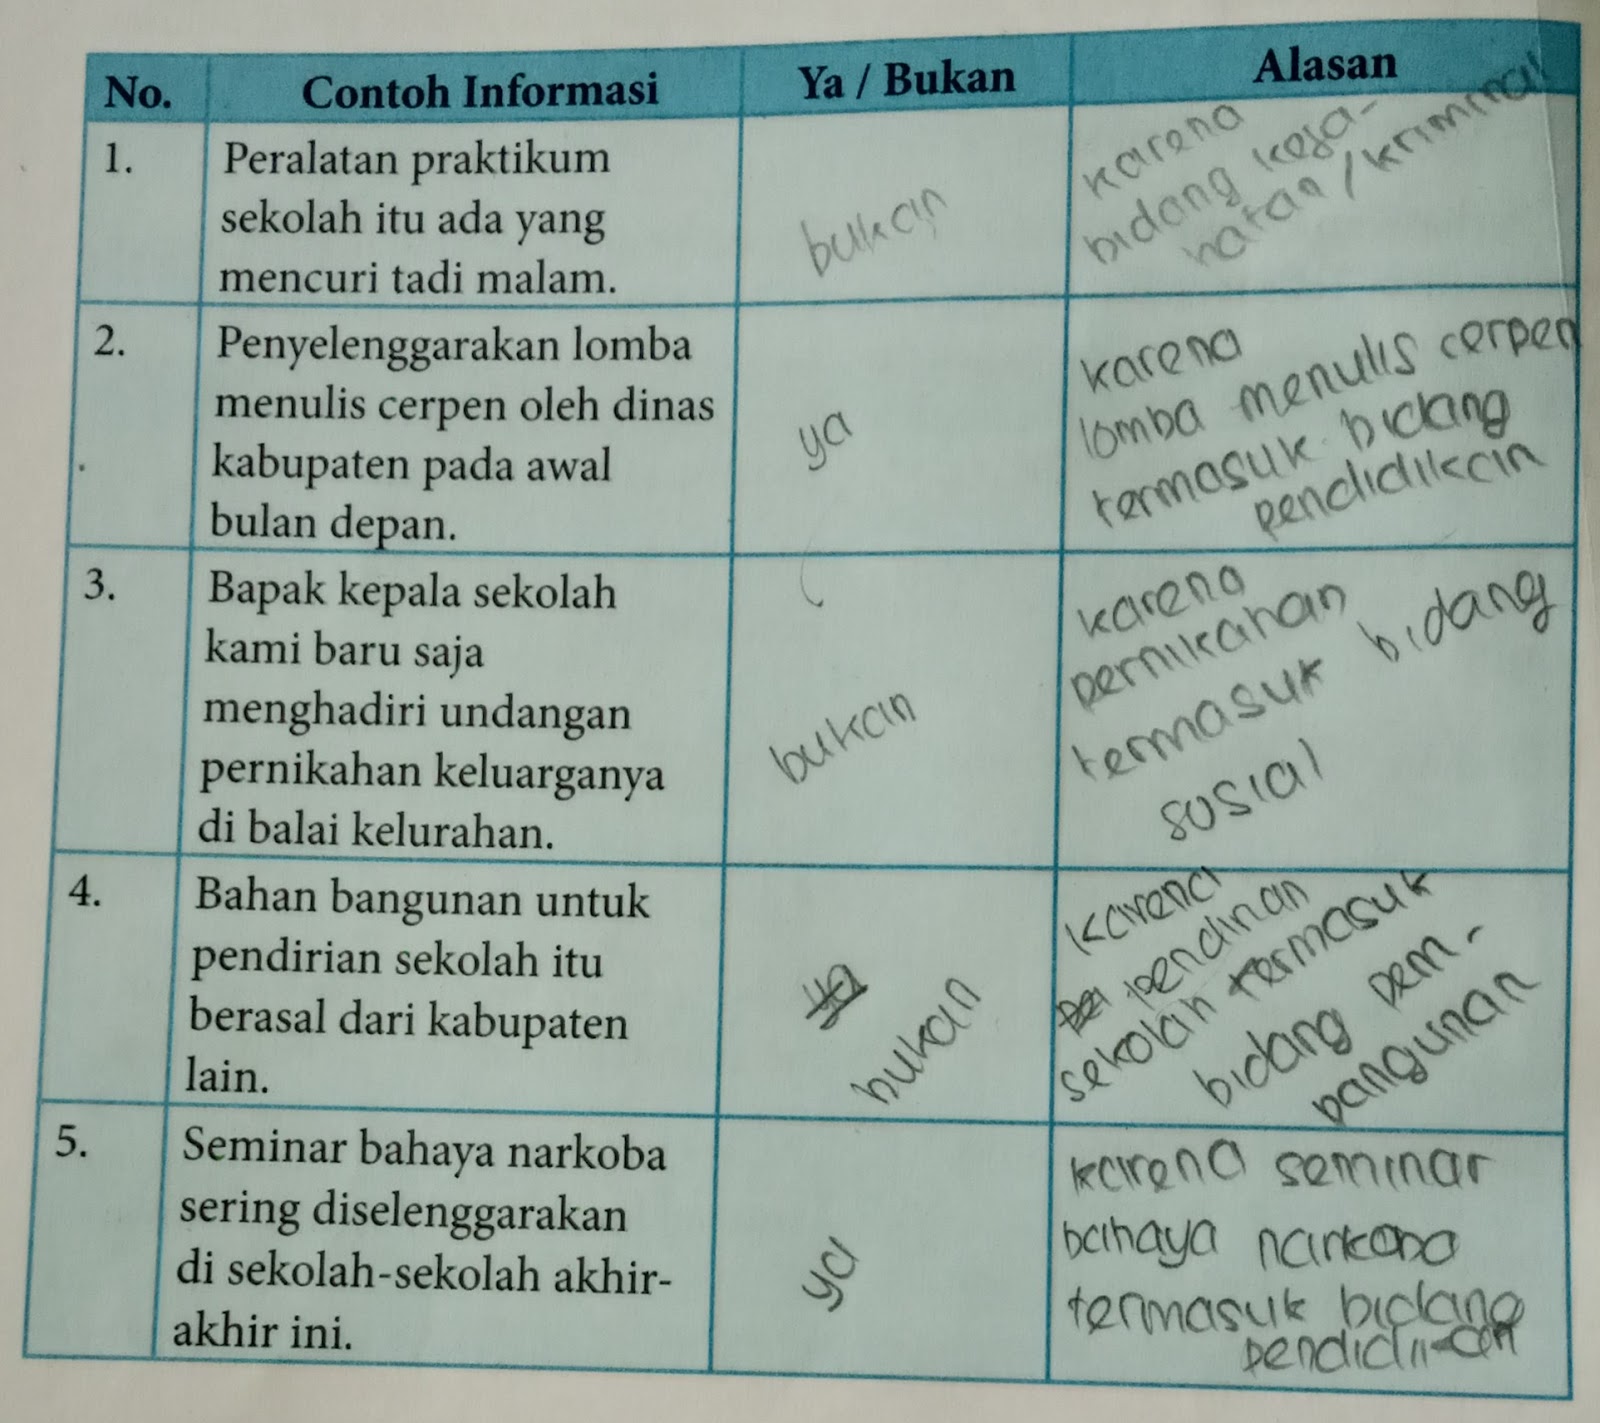 No. Contoh Informasi Ya / Bukan Alasan
1. Peralatan praktikum
sekolah itu ada yang
mencuri tadi malam.
bukan
karena
bidang keja-
hatan / kriminal
2. Penyelenggarakan lomba
menulis cerpen oleh dinas
kabupaten pada awal
bulan depan.
ya
karena
lomba menulis cerpen
termasuk bidang
pendidikan
3. Bapak kepala sekolah
kami baru saja
menghadiri undangan
pernikahan keluarganya
di balai kelurahan.
bukan
karena
pernikahan
termasuk bidang
sosial
4. Bahan bangunan untuk
pendirian sekolah itu
berasal dari kabupaten
lain.
ya
bukan
karena
pendirian
sekolah termasuk
bidang pem-
bangunan
5. Seminar bahaya narkoba
sering diselenggarakan
di sekolah-sekolah akhir-
akhir ini.
ya
karena seminar
bahaya narkoba
termasuk bidang
pendidikan